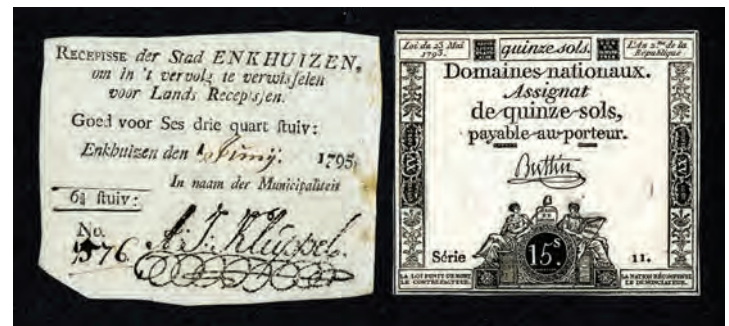 RECEPISSE der Stad ENKHUIZEN,
om in 't vervolg te verwisselen
voor Lands Recepsjen.
Goed voor Ses drie quart stuiv:
Enkhuizen den 1 Junij. 1795
In naam der Municipaliteit
6¾ stuiv:
No.
1576. A: J. Kluppel.
Loi du 23 Mai
1793.
quinze sols.
L'An 2.me de la
République
Domaines nationaux.
Assignat
de quinze sols,
payable au porteur.
Buttin
Série
15.s
11.
LA LOI PUNIT DE MORT
LE CONTREFACTEUR.
LA NATION RÉCOMPENSE
LE DÉNONCIATEUR.